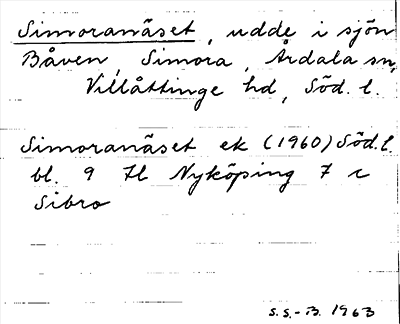 Simoranäset, udde i sjön
Båven, Simora, Årdala sn,
Villåttinge hd, Söd. l.
Simoranäset ek (1960) Söd. l.
bl. 9 Nyköping 7 c
Sibro
S.S.-B. 1963